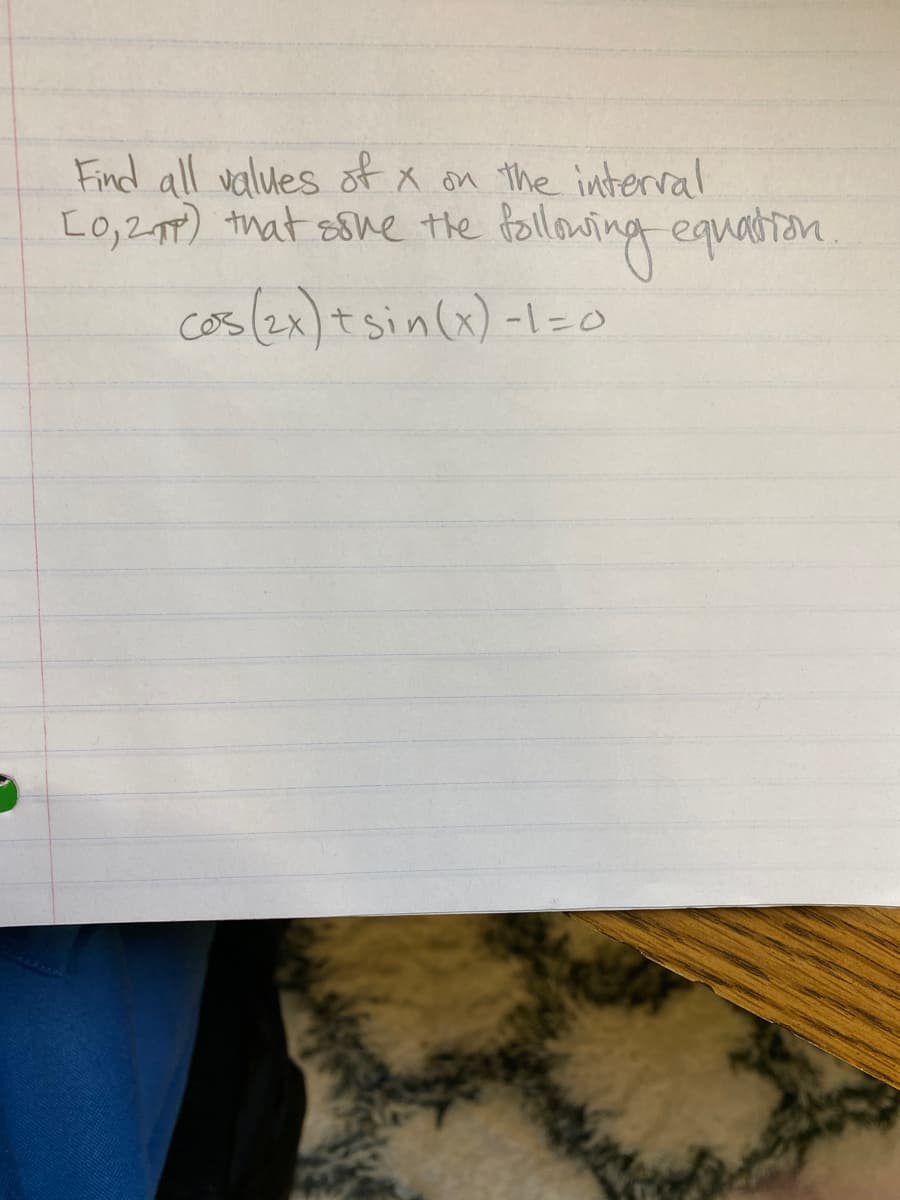 Find all values of x on the interval
[0,2π) that solve the following equation.
cos(2x)+sin(x)-1=0